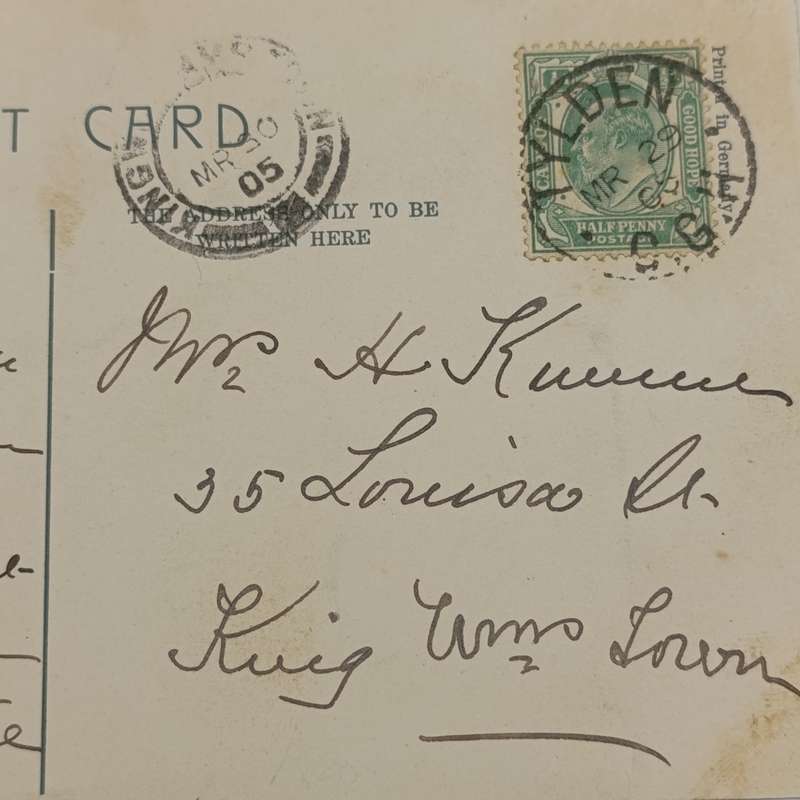 T CARD
MR 30
05
KING
THE ADDRESS ONLY TO BE
WRITTEN HERE
GOOD HOPE
HALFPENNY
POSTAGE
TYLDEN
MR 29
C.G.H.
Printed in Germany
Mrs H
35 Louisa St
King Wms Town